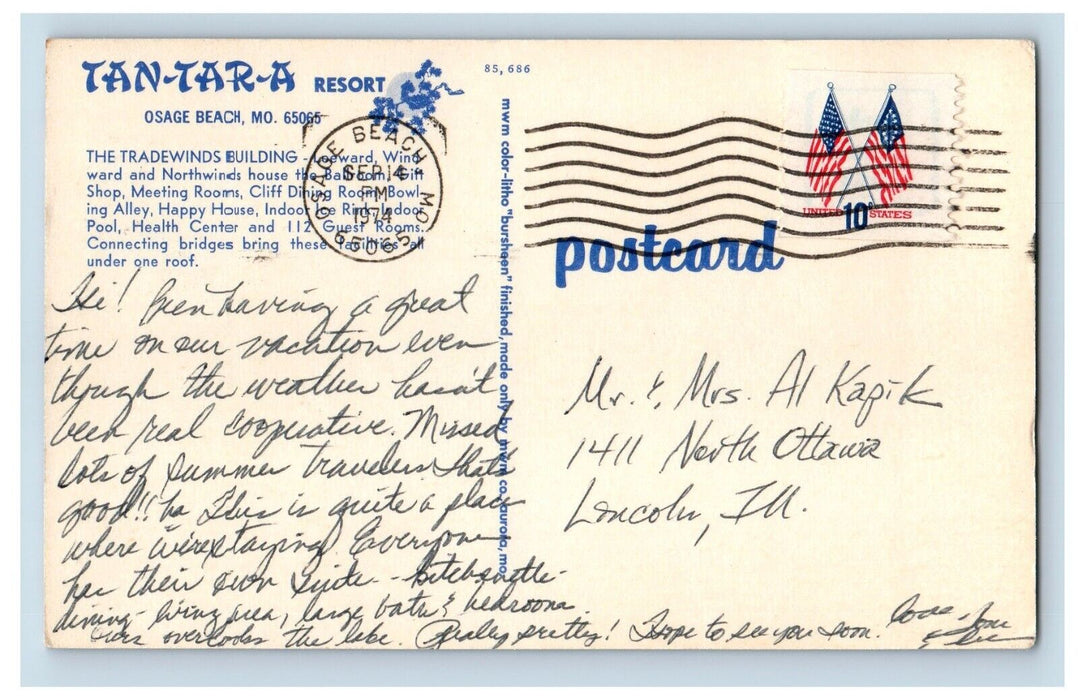 TAN-TAR-A RESORT
OSAGE BEACH, MO. 65065
85,686
THE TRADEWINDS BUILDING - Leeward, Wind-
ward and Northwinds house the Ballroom, Gift
Shop, Meeting Rooms, Cliff Dining Room, Bowl-
ing Alley, Happy House, Indoor Ice Rink, Indoor
Pool, Health Center and 112 Guest Rooms.
Connecting bridges bring these facilities all
under one roof.
OSAGE BEACH MO
SEP 14
PM
1974
65065
UNITED 10c STATES
postcard
mwm color-litho "bursheen" finished, made only by mwm co., aurora, mo.
Hi! Been having a great
time on our vacation even
though the weather hasn't
been real cooperative. Missed
lots of summer travelers that's
good!! ha This is quite a place
where we're staying. Everyone
has their own suite - kitchenette -
dining - living area, large bath & bedrooms.
Ours overlooks the lake. Really pretty! Hope to see you soon.
Love,
Mr. & Mrs. Al Kapik
1411 North Ottawa
Lincoln, Ill.